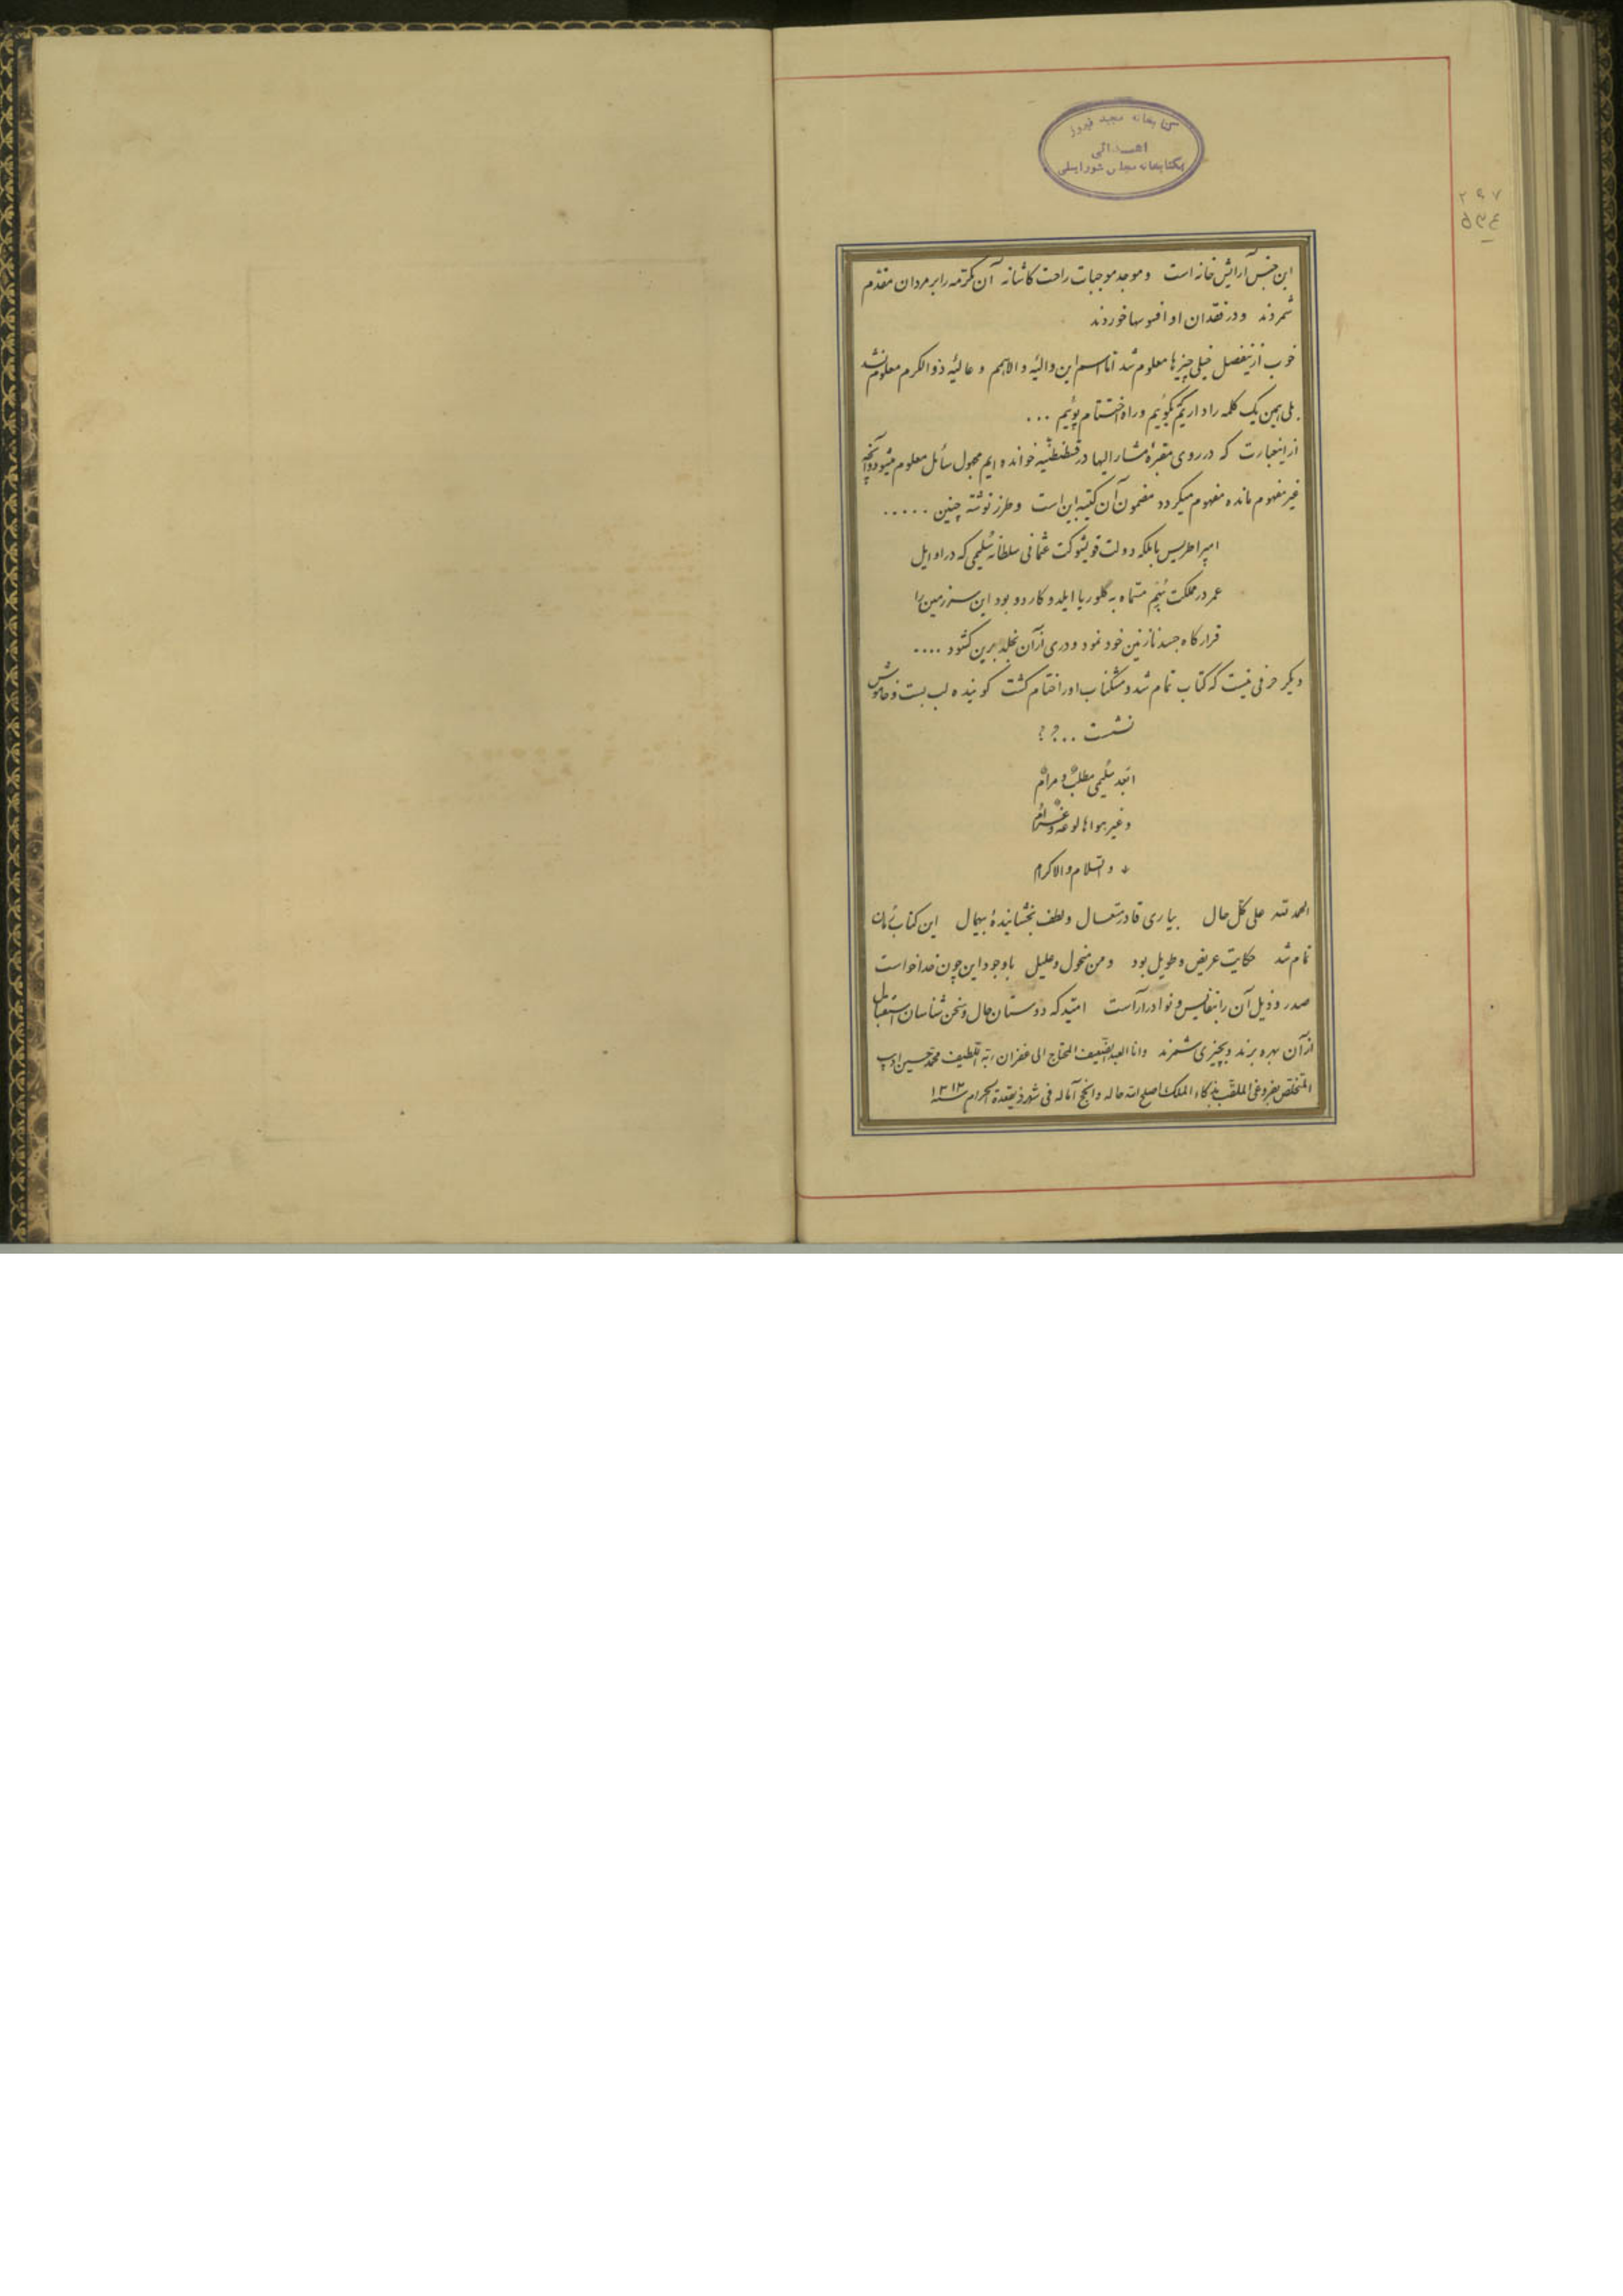 کتابخانه مجید فیروز
اهدائی
بکتابخانه مجلس شورایملی
۲۹۷
۵۳۴
این جنس آرایش خانه است و موجد موجبات راحت کاشانه آن مکرّمه را بر مردان مقدّم
شمردند و در فقدان او افسوسها خوردند
خوب ازینفصل خیلی چیزها معلوم شد امّا اسم این والیهٔ والاهمم و عالیهٔ ذوالکرم معلوم نشد
بلی همین یک کلمه را داریم که بگوئیم و راه اختتام پوئیم ...
ازاینعبارت که در روی مقبرهٔ مشارالیها در قسطنطنیّه خوانده‌ایم مجهول سائل معلوم میشود و آنچه
غیر مفهوم مانده مفهوم میگردد مضمون آن کتیبه این است و طرز نوشته چنین .....
امپراطریس یا ملکه دولت قویشوکت عثمانی سلطانه سُلیمی که در اوایل
عمر در مملکت پنجم مسمّاه به گلوریا ایلدوکاردو بود این سرزمین را
قرارگاه جسد نازنین خود نمود و دری از آن بخلد برین گشود ....
دیگر حرفی نیست که کتاب تمام شد و مشکناب اورا ختام گشت گوینده لب بست و خاموش
نشست ..؟؟
ابعد سُلیمی مطلبٌ و مرامٌ
و غیر هواها لوعة و غرامٌ
و السّلام و الاکرام
الحمد لله علی کلّ حال بیاری قادر متعال و لطف بخشایندهٔ بیهمال این کتاب رُمان
تمام شد حکایت عریض و طویل بود و من منحول و علیل باوجود این چون خدا خواست
صدر و ذیل آن را بنفایس و نوادر آراست امّید که دوستان حال و سخن‌شناسان استقبال
از آن بهره برند و بچیزی شمرند و انا العبد الضّعیف المحتاج الی غفران ربّه اللّطیف محمّد حسین ادیب
المتخلّص بفروغی الملقّب بذکاء الملک اصلح الله حاله و انجح آماله فی شهر ذیقعدة الحرام سنه ۱۳۱۲